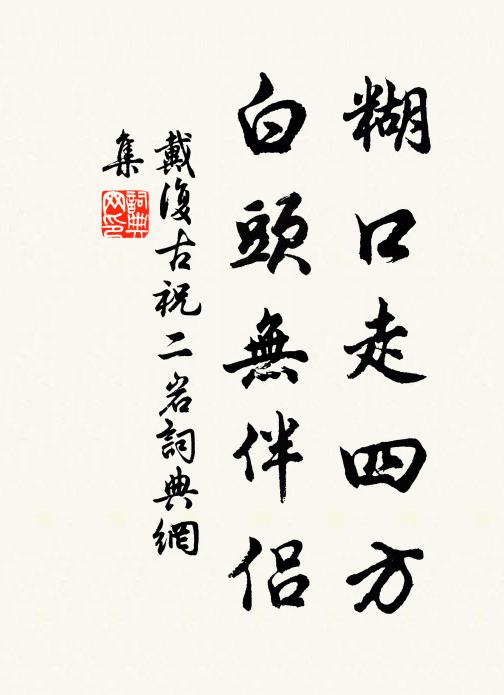 糊口走四方
白頭無伴侣
戴復古祝二岩詞典網
集
詞典
网印